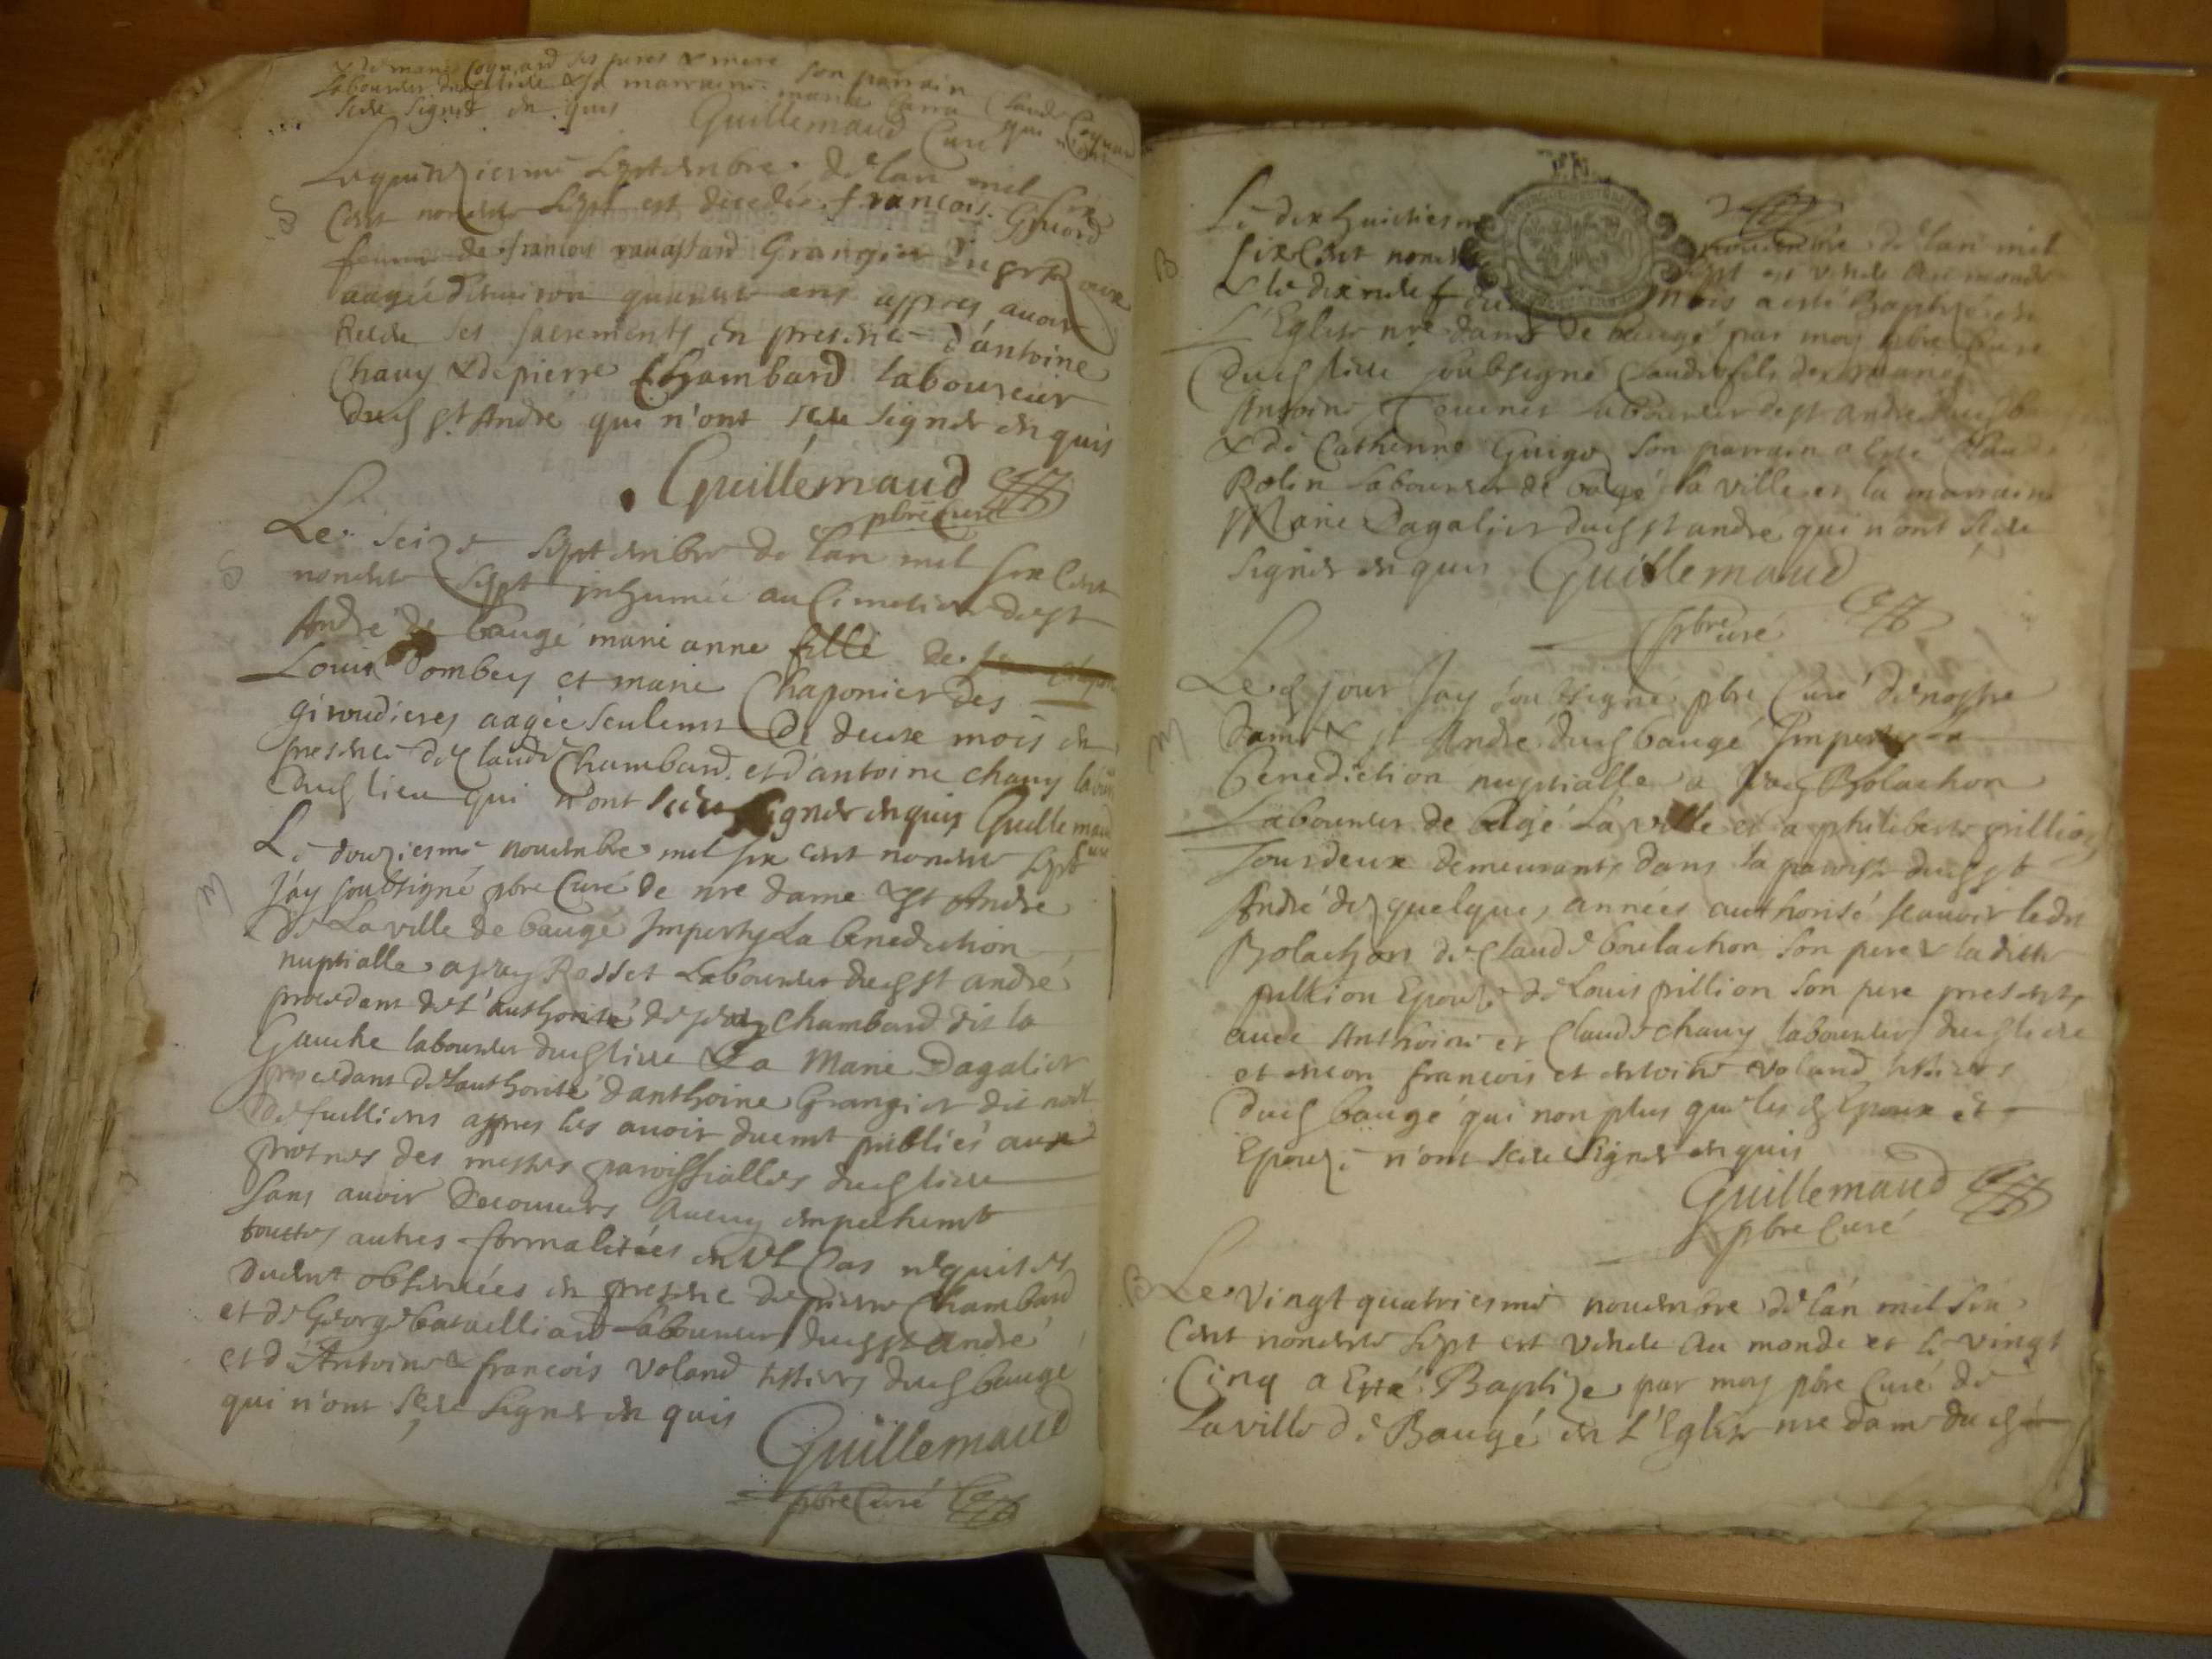 & de marie Coquard ses peres & mere son parrain Claude Coquard
laboureur dud lieu & sa marraine marie qui n'ont
sceu signer en quis Guillemaud Curé
Le quinziesme Septembre de lan mil six
S
Cent nonente sept est decedée francoise
femme de francois Grangier du
aagée d'environ quarente ans appres avoir
Receu ses sacrements en presence d'antoine
Chavy & de pierre Chambard laboureur
dud st André qui n'ont sceu signer en quis
Guillemaud
pbre Curé
S
Le seize septembre de lan mil six Cent
nonente sept inhumée au Cimetiere de st
André de baugé marie anne fille de
Louis Dombey et marie Chaponier des
giroudieres aagée seulemt de deux mois en
presence de Claude Chambard et d'antoine chavy
dud lieu qui n'ont sceu signer en quis Guillemaud
Curé
Le douziesme novembre mil six cent nonente sept
M
J'ay soubsigné pbre Curé de nre dame & st André
de La ville de baugé Imparty La benediction
nuptialle a Rosset Laboureur dud st andré
procedant de L'authorité de Chambard dit la
Gauche laboureur dud lieu & a Marie Dagalier
procedant de lauthorité d'anthoine Grangier
de appres les avoir duemt publiés aux
prosnes des messes paroissialles dud lieu
sans avoir decouvers Aucuy empechemt
touttes autres formalitées en tel Cas requises
duemt observées en presence de pierre Chambard
et de George batailliard Laboureur dud st André
et d'Antoine & francois Voland dud baugé
qui n'ont sceu signer en quis
Guillemaud
pbre Curé
B
Le dix huictiesme novembre de lan mil
six Cent nonente sept est venu au monde
& le dix neuf du mois a esté Baptizé en
L'Eglise nre dame de baugé par moy pbre Curé
dud lieu soubsigné Claude fils de
Antoine laboureur de st andré dud
& de Catherine Guigo son parrain a esté Claude
Rolin laboureur de bagé la ville et la marraine
Marie Dagalier dud st andré qui n'ont sceu
signer en quis Guillemaud
pbre Curé
M
Led jour Jay soubsigné pbre Curé de nostre
dame & st André dud baugé Imparty la
benediction nuptialle a Bolachon
Laboureur de bagé La ville et a philiberte pillion
Tous deux demeurants dans la paroisse dud st
André dez quelques années authorisé scavoir ledit
Bolachon de Claude boulachon son pere & laditte
pillion Epouse de Louis pillion son pere presents
avec Anthoine et Claude chavy laboureurs dud lieu
et encor francois et Voland
dud baugé qui non plus que les d Epoux et
Epouze n'ont sceu signer en quis
Guillemaud
pbre Curé
B
Le vingt quatriesme novembre de lan mil six
Cent nonente sept est venue au monde et le vingt
Cinq a Esté Baptize par moy pbre Curé de
La ville de Baugé en L'Eglise nre dame dud